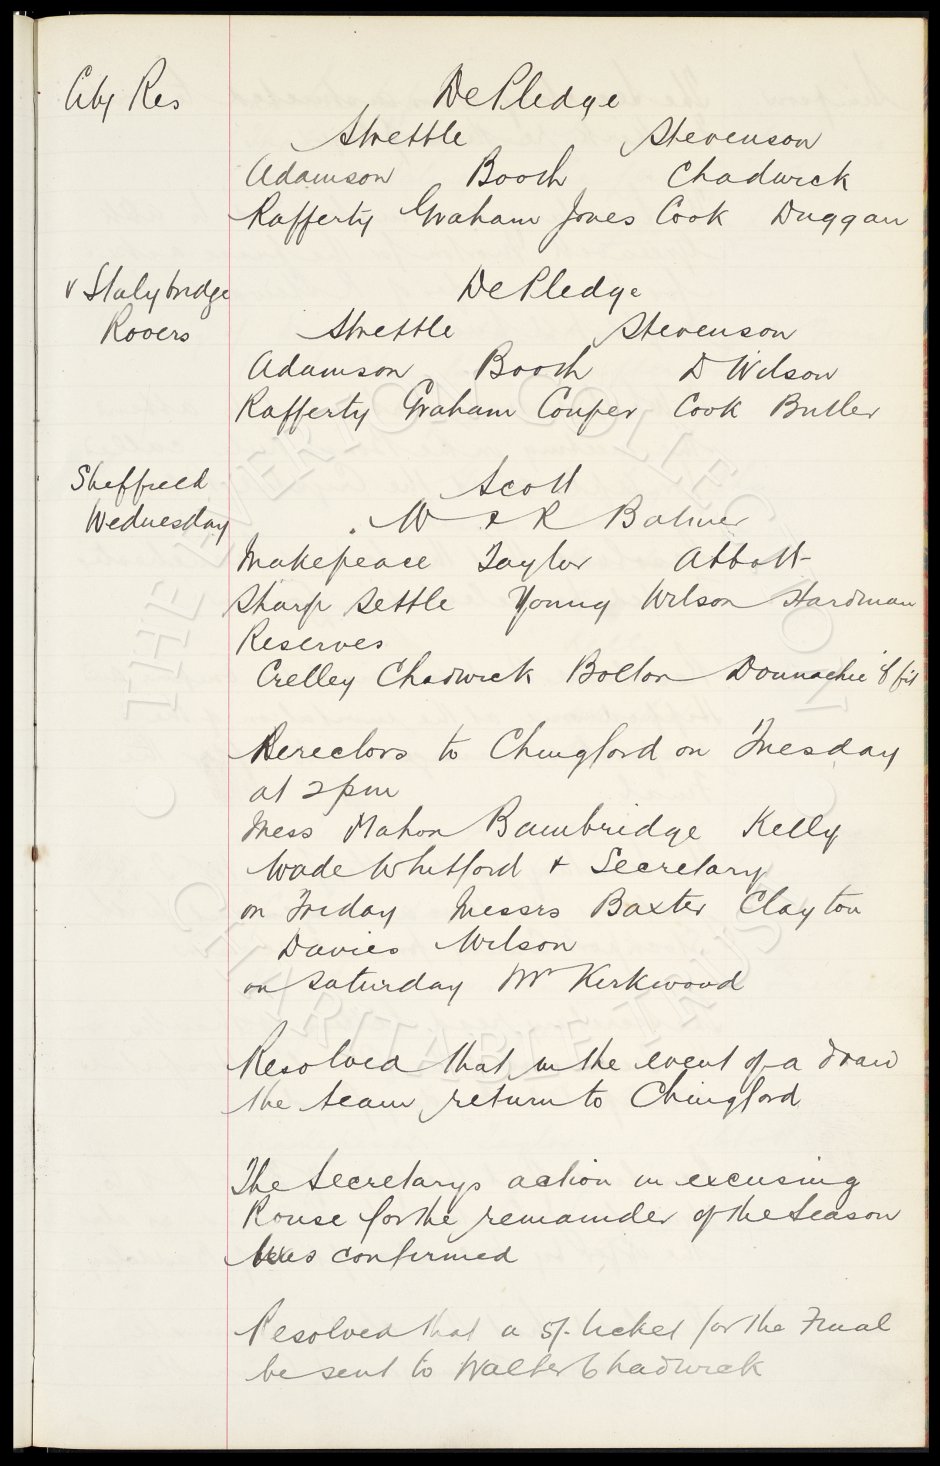 City Res
DePledge
Strettle Stevenson
Adamson Booth Chadwick
Rafferty Graham Jones Cook Duggan
v Stalybridge
Rovers
DePledge
Strettle Stevenson
Adamson Booth D Wilson
Rafferty Graham Couper Cook Butler
Sheffield
Wednesday
Scott
W & R Balmer
Makepeace Taylor Abbott
Sharp Settle Young Wilson Hardman
Reserves
Crelley Chadwick Bolton Donnachie if fit
Directors to Chingford on Tuesday
at 2 pm
Mess Mahon Bainbridge Kelly
Wade Whitford & Secretary
on Friday Messrs Baxter Clayton
Davies Wilson
on Saturday Mr Kirkwood
Resolved that in the event of a draw
the team return to Chingford
The Secretarys action in excusing
Rouse for the remainder of the Season
was confirmed
Resolved that a 5/- ticket for the Final
be sent to Walter Chadwick
THE EVERTON COLLECTION
CHARITABLE TRUST